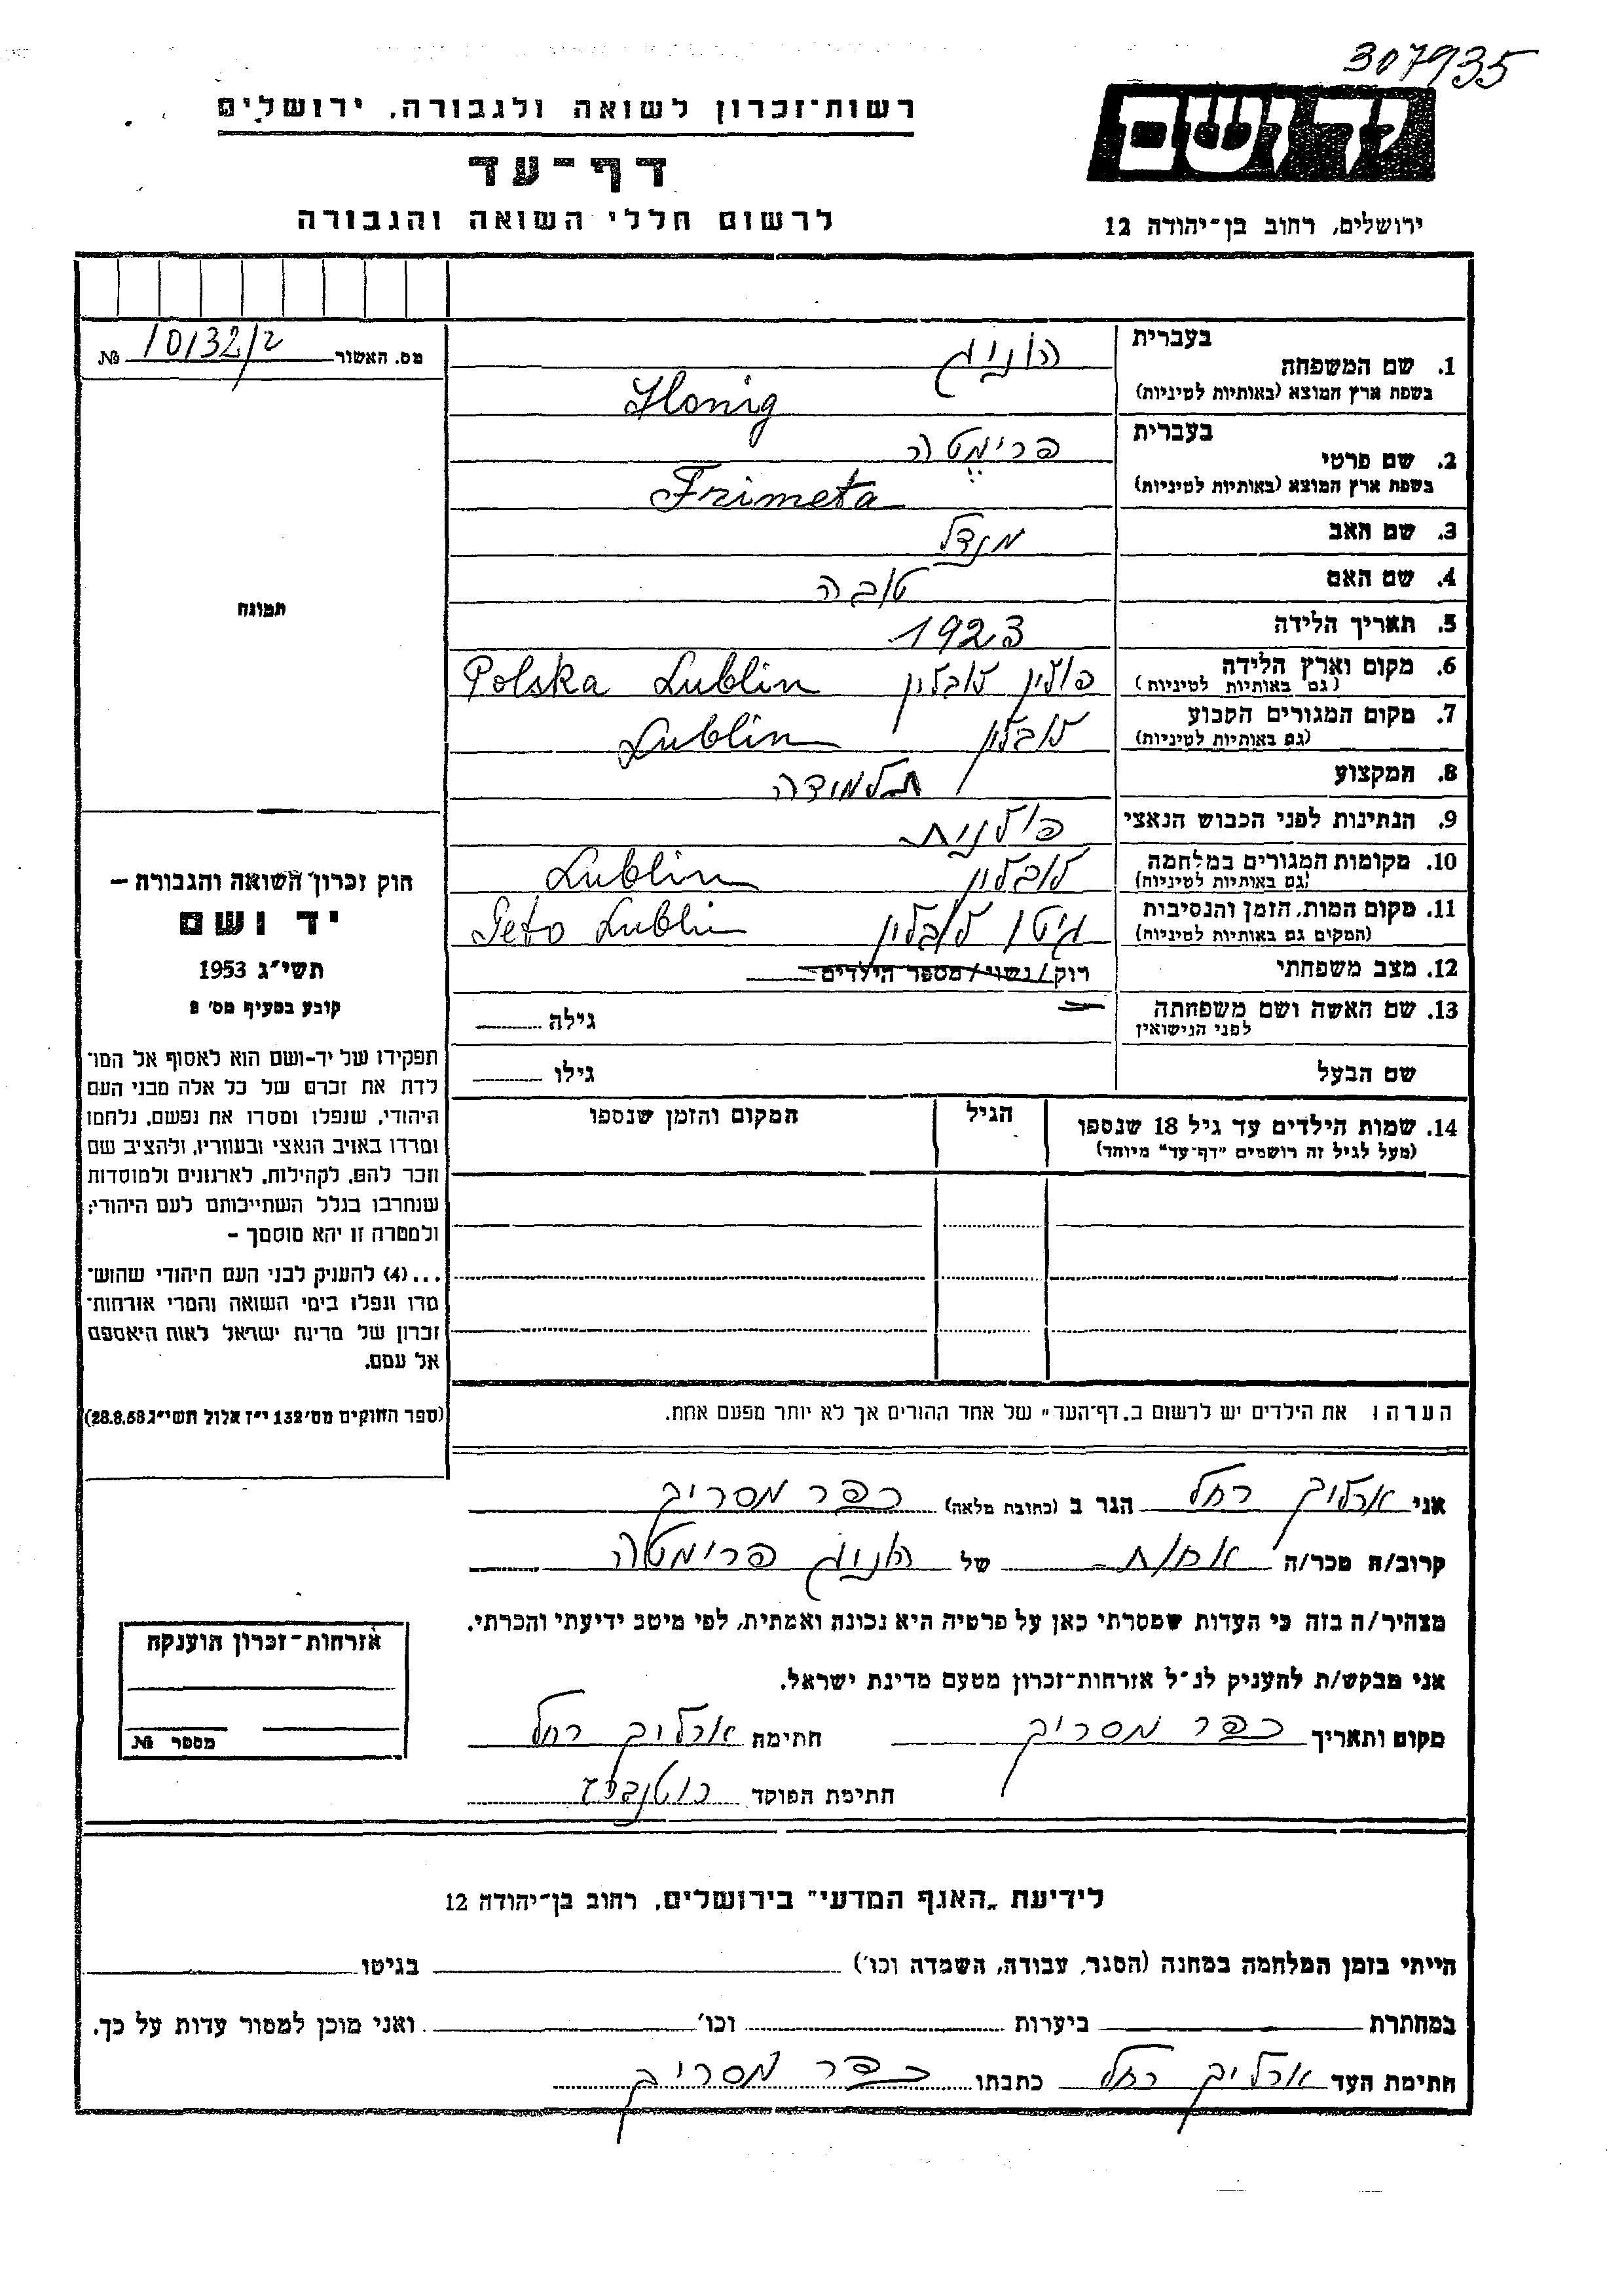 307935
יד ושם
רשות־זכרון לשואה ולגבורה, ירושלים
דף־עד
לרשום חללי השואה והגבורה
ירושלים, רחוב בן־יהודה 12
מס. האשור 10132/2 №
תמונה
1. שם המשפחה
בעברית הוניג
בשפת ארץ המוצא (באותיות לטיניות) Honig
2. שם פרטי
בעברית פרימטה
בשפת ארץ המוצא (באותיות לטיניות) Frimeta
3. שם האב מנדל
4. שם האם טובה
5. תאריך הלידה 1923
6. מקום וארץ הלידה פולין לובלין Polska Lublin
(גם באותיות לטיניות)
7. מקום המגורים הקבוע לובלין Lublin
(גם באותיות לטיניות)
8. המקצוע תלמידה
9. הנתינות לפני הכבוש הנאצי פולנית
10. מקומות המגורים במלחמה לובלין Lublin
(גם באותיות לטיניות)
11. מקום המות, הזמן והנסיבות גיטו לובלין Geto Lublin
(המקום גם באותיות לטיניות)
12. מצב משפחתי רוק/נשוי/מספר הילדים
13. שם האשה ושם משפחתה — גילה
לפני הנישואין
שם הבעל גילו
14. שמות הילדים עד גיל 18 שנספו הגיל המקום והזמן שנספו
(מעל לגיל זה רושמים "דף־עד" מיוחד)
חוק זכרון השואה והגבורה –
יד ושם
תשי"ג 1953
קובע בסעיף מס' 2
תפקידו של יד-ושם הוא לאסוף אל המו־
לדת את זכרם של כל אלה מבני העם
היהודי, שנפלו ומסרו את נפשם, נלחמו
ומרדו באויב הנאצי ובעוזריו, ולהציב שם
וזכר להם, לקהילות, לארגונים ולמוסדות
שנחרבו בגלל השתייכותם לעם היהודי;
ולמטרה זו יהא מוסמך –
...(4) להעניק לבני העם היהודי שהוש־
מדו ונפלו בימי השואה והמרי אזרחות־
זכרון של מדינת ישראל לאות היאספם
אל עמם.
(ספר החוקים מס' 132 י"ז אלול תשי"ג 28.8.53)
הערה: את הילדים יש לרשום ב„דף־העד" של אחד ההורים אך לא יותר מפעם אחת.
אני ארליך רחל הגר ב (כתובת מלאה) כפר מסריק
קרוב/ה מכר/ה אחות של הוניג פרימטה
מצהיר/ה בזה כי העדות שמסרתי כאן על פרטיה היא נכונה ואמתית, לפי מיטב ידיעתי והכרתי.
אני מבקש/ת להעניק לנ"ל אזרחות־זכרון מטעם מדינת ישראל.
מקום ותאריך כפר מסריק חתימה ארליך רחל
חתימת הפוקד
אזרחות־זכרון הוענקה
מספר №
לידיעת „האגף המדעי" בירושלים, רחוב בן־יהודה 12
הייתי בזמן המלחמה במחנה (הסגר, עבודה, השמדה וכו') בגיטו
במחתרת ביערות וכו' ואני מוכן למסור עדות על כך.
חתימת העד ארליך רחל כתבתו כפר מסריק